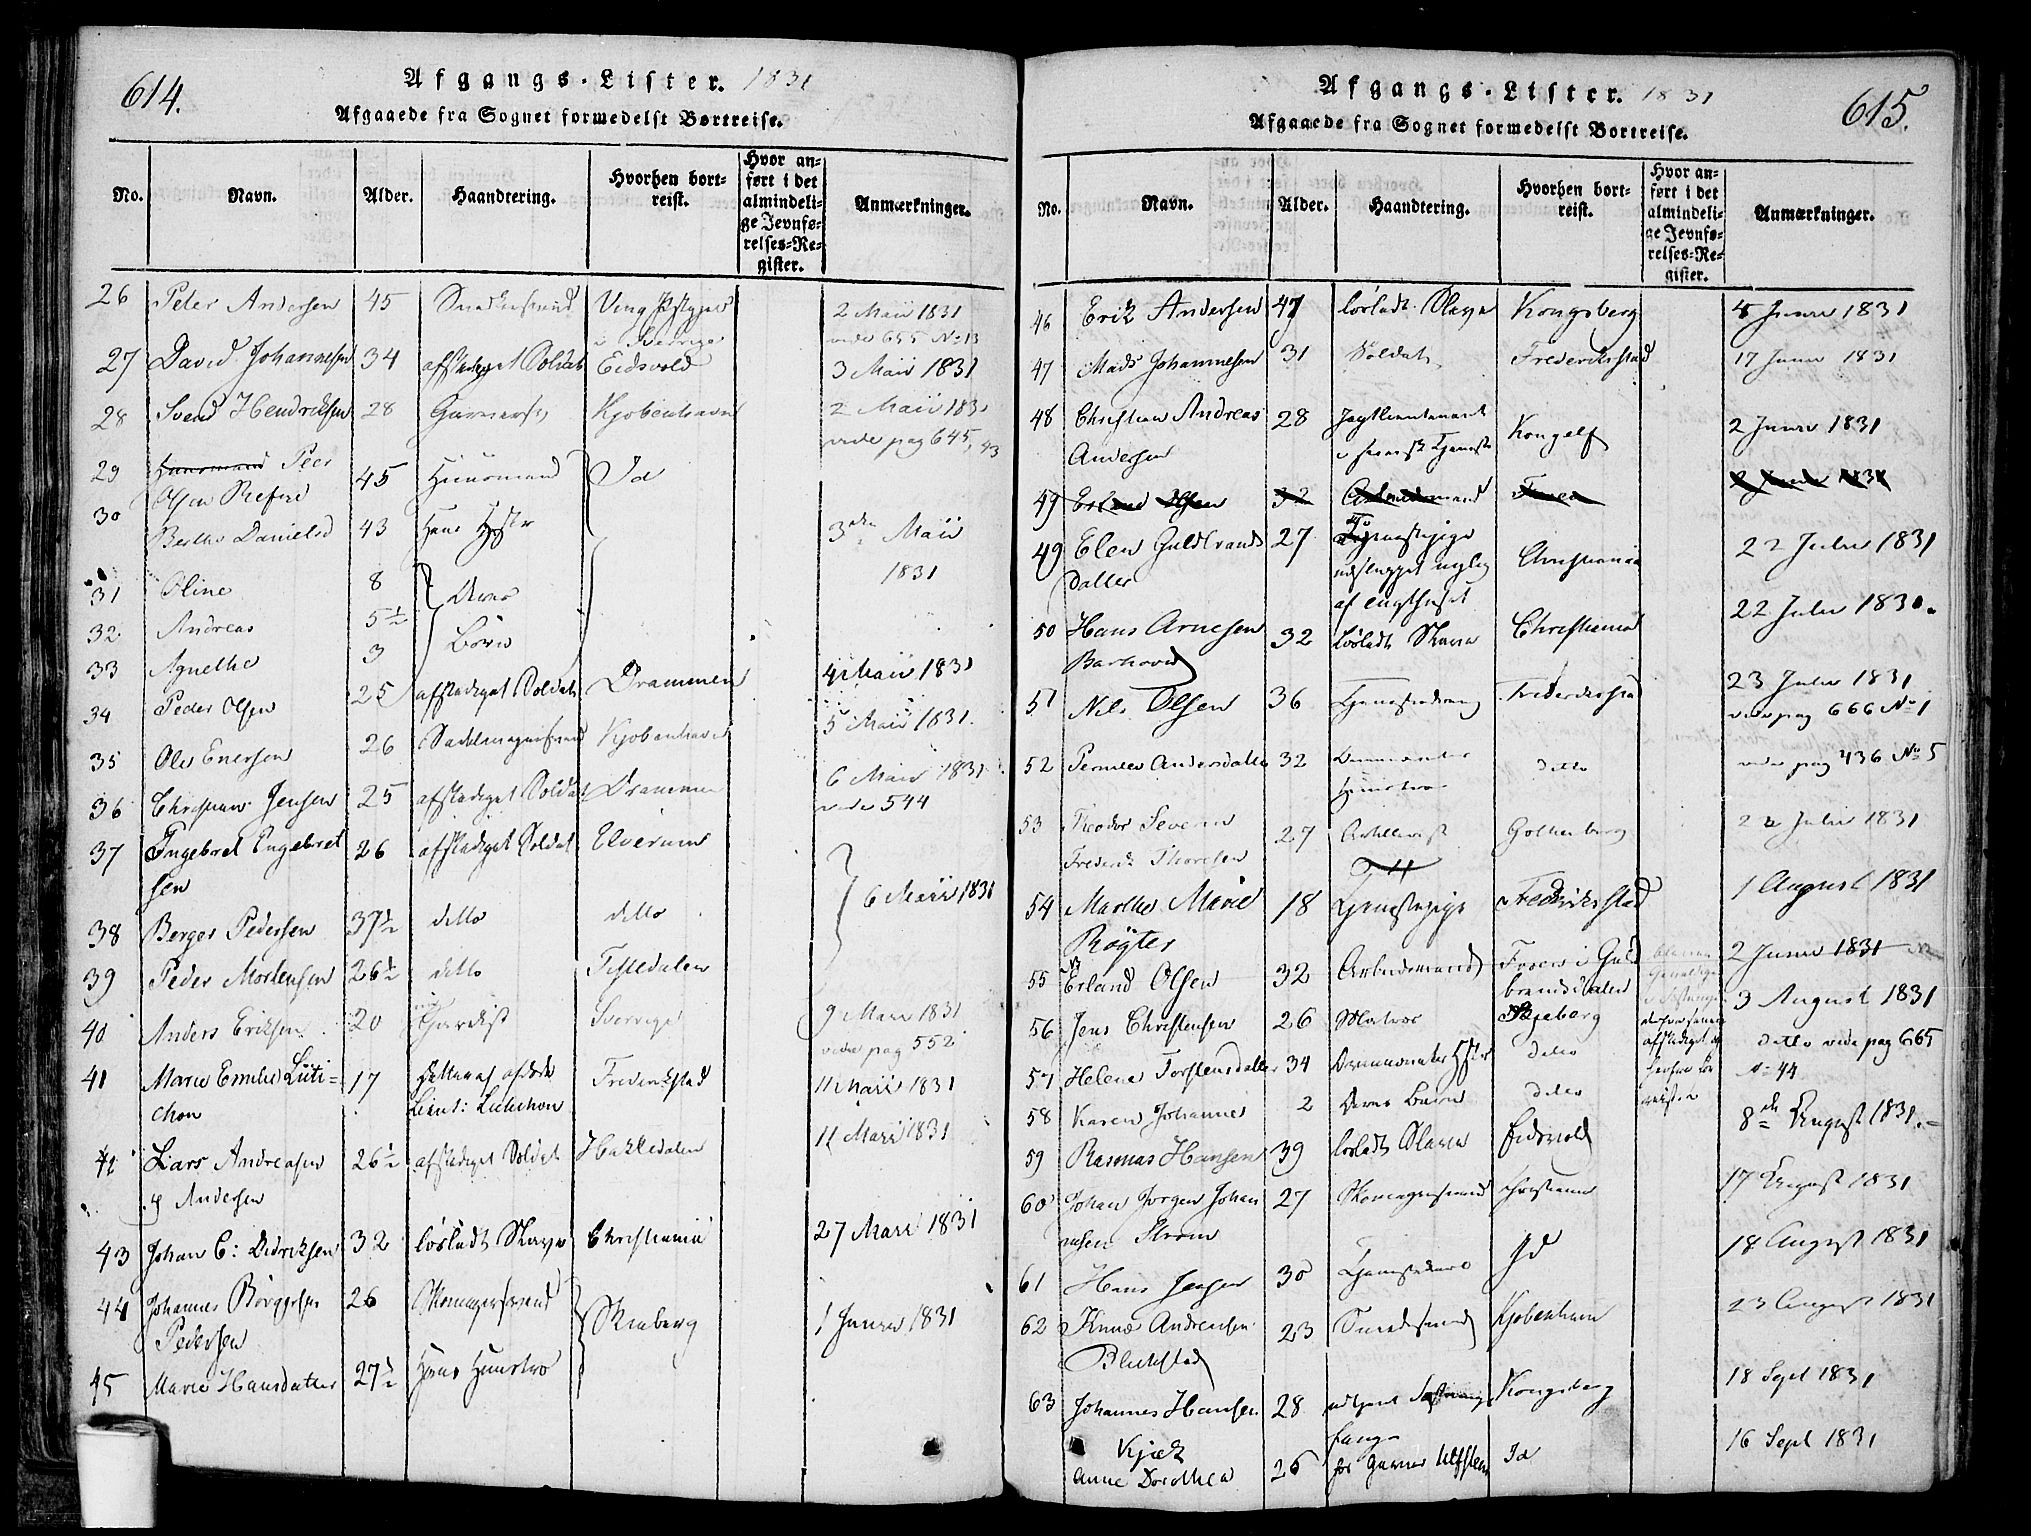 614.
Afgangs-Lister. 1831
Afgaaede fra Sognet formedelst Bortreise.
No. Navn. Alder. Haandtering. Hvorhen bort-reist. Hvor an-ført i det almindeli-ge Jevnfø-relses-Re-gister. Anmærkninger.
26 Peter Andersen 45 2 Maii 1831
i Sverrige vide 655 No 13
27 David Johannesen 34 afskediget Soldat Eidsvold 3 Maii 1831
28 Svend Hendriksen 28 Kjøbenhavn 2 Maii 1831
vide pag 645, 43
29 Huusmand Peer
Olsen Refne 45 Huusmand Id
30 Berthe Danielsd 43 Hans Hustr 3den Maii
1831
31 Oline 8 Deres
32 Andreas 5½ Børn
33 Agnethe 3
34 Peder Olsen 25 afskediget Soldat Drammen 4 Maii 1831
35 Ole Enersen 26 Sadelmagersvend Kjøbenhavn 5 Maii 1831.
36 Christian Jensen 25 afskediget Soldat Drammen 6 Maii 1831
vide 544
37 Ingebret Ingebret
sen 26 afskediget Soldat Elverum
6 Maii 1831
38 Berger Pedersen 37½ ditto ditto
39 Peder Mortensen 26½ ditto Tistedalen
40 Anders Eriksen 20 Gardist Sverrige 9 Maii 1831
vide pag 552
41 Marie Emilie Lüti=
chon 17 Datter af afdøde
Lieut: Lutichon Frederikstad 11 Maii 1831
42 Lars Andreasen
Andersen 26½ afskediget Soldat Hakkedalen 11 Maii 1831
43 Johan C: Didriksen 32 løsladt Slave Christiania 27 Maii 1831
44 Johannes Børgersen
Pedersen 26 Skomagersvend Skieberg 1 Junii 1831
45 Marie Hansdatter 27½ Hans Huustro
615.
Afgangs-Lister. 1831
Afgaaede fra Sognet formedelst Bortreise.
No. Navn. Alder. Haandtering. Hvorhen bort-reist. Hvor an-ført i det almindeli-ge Jevnfø-relses-Re-gister. Anmærkninger.
46 Erik Andersen 47 løsladt Slave Kongsberg 8 Junii 1831
47 Mads Johannesen 31 Soldat Frederikstad 17 Junii 1831
48 Christian Andreas
Andersen 28 Jagtlieutenant
i svensk Tjeneste Kongelf 2 Junii 1831
49 Erland Olsen 32 Arbeidsmand
49 Elen Guldbrands
datter 27 Tjenestepige
udsluppet nylig
af tugthuset Christiania 22 Julii 1831
50 Hans Arnesen
32 Løsladt Slave Christiania 22 Julii 1831.
51 Nils Olsen 36 Tjenestedreng Frederikstad 23 Julii 1831
vide pag 666 No 1
52 Pernille Andersdatter 32 Huustroe ditto vide pag 436 No 5
53 Theodor Severin
Frederik Thoresen 27 Artillerist Gothenborg 22 Julii 1831
54 Marthe Marie
Røgter 18 Tjenestepige Fredrikstad 1 August 1831
55 Erland Olsen 32 Arbeidsmand i Guld
brandsdalen 2 Junii 1831
56 Jens Christensen 26 Matros Skjeberg 3 August 1831
57 Helene Torstensdatter 34 ditto ditto vide pag 665
No 44
58 Karen Johannes 2 Deres Barn ditto
59 Rasmus Hansen 39 løsladt Slave Eidsvold 8de August 1831.
60 Johan Jørgen Johan
nesen Strøm 27 Skomagersvend Christiania 17 August 1831
61 Hans Jensen 30 Id 18 August 1831
62 Knud Andreasen
Blekstad 23 Smedesvend Kjøbenhavn 23 August 1831
63 Johannes Hansen 28 Kongsberg 18 Sept 1831
fange
Anne Dorothea 26 Id 16 Sept 1831